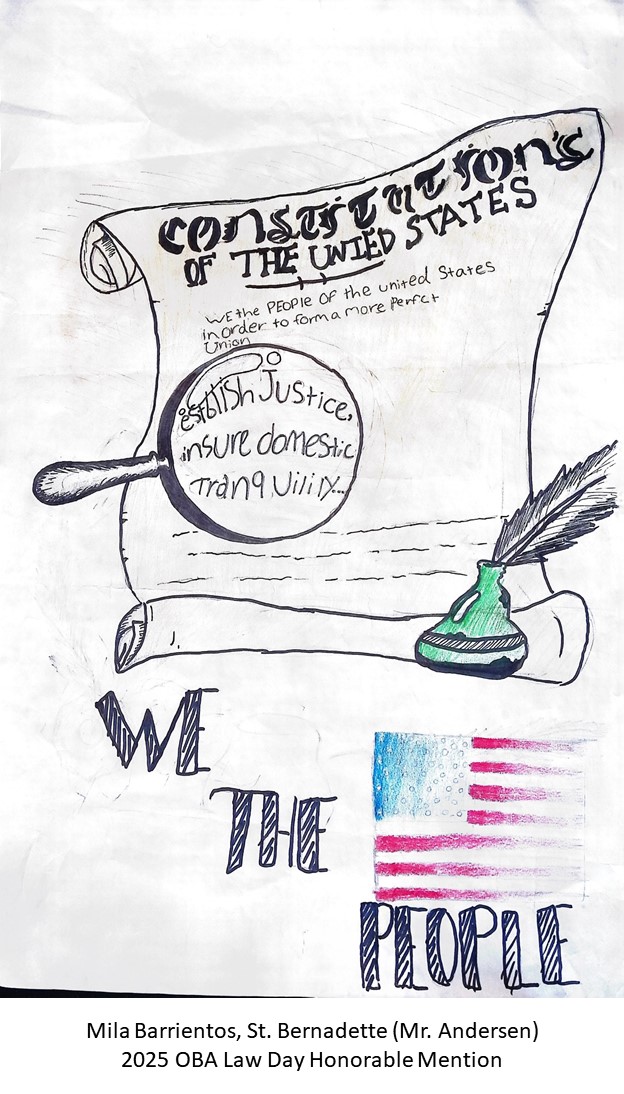 CONSTITUTIONS
OF THE UNIED STATES
WE the PEOPLE OF the united States
in order to form a more Perfct
Union
establish Justice,
insure domestic
Tranquility...
WE
THE
PEOPLE
Mila Barrientos, St. Bernadette (Mr. Andersen)
2025 OBA Law Day Honorable Mention